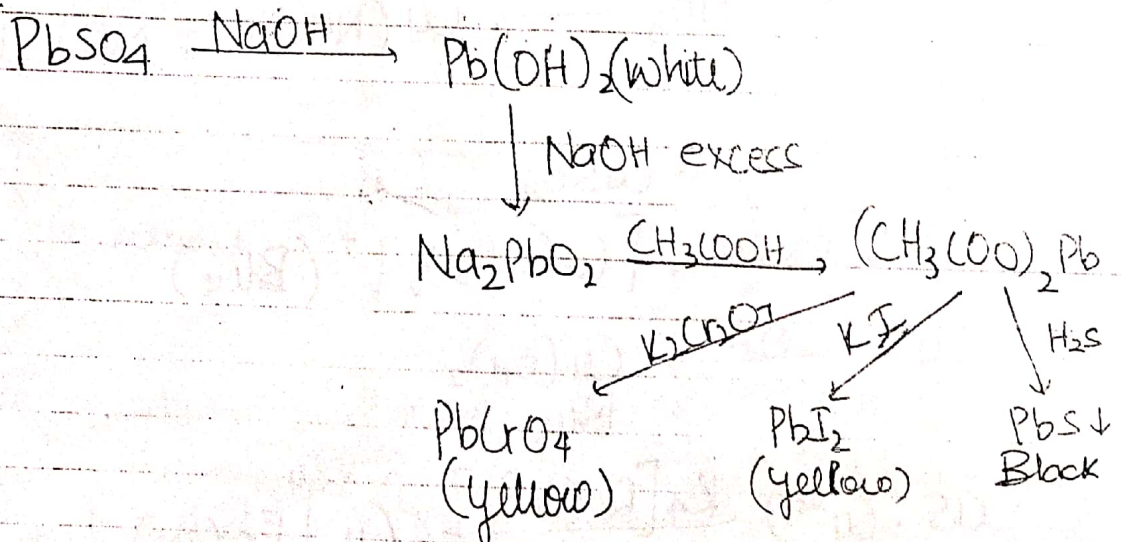 PbSO4 NaOH Pb(OH)2(white)
NaOH excess
Na2PbO2 CH3COOH (CH3COO)2Pb
K2Cr2O7 KI H2S
PbCrO4 PbI2 PbS↓
(yellow) (yellow) Black